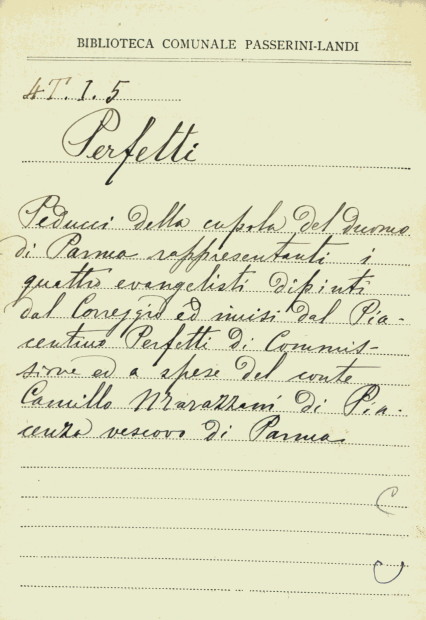 BIBLIOTECA COMUNALE PASSERINI-LANDI
4T. I. 5
Perfetti
Peducci della cupola del duomo
di Parma rappresentanti i
quattro evangelisti dipinti
dal Correggio ed incisi dal Pia-
centino Perfetti di Commis-
sione ed a spese del conte
Camillo Marazzani di Pia-
cenza vescovo di Parma